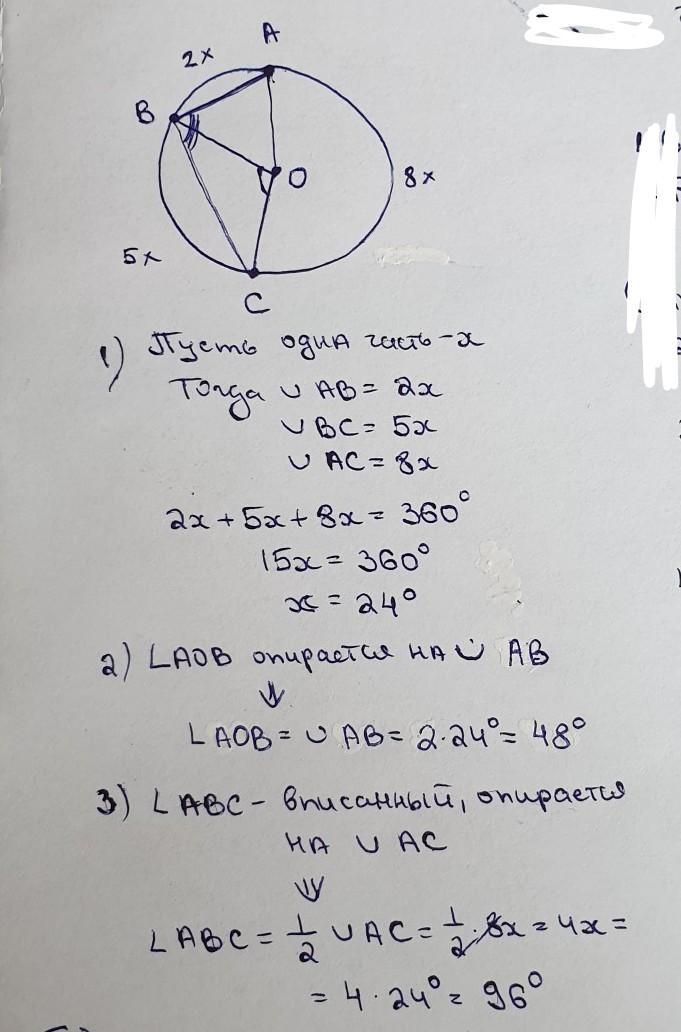 A
2x
B
O
8x
5x
C
1) Пусть одна часть - x
Тогда ∪ AB = 2x
∪ BC = 5x
∪ AC = 8x
2x + 5x + 8x = 360°
15x = 360°
x = 24°
2) ∠AOB опирается на ∪ AB
⇓
∠AOB = ∪ AB = 2·24° = 48°
3) ∠ABC - вписанный, опирается
на ∪ AC
⇓
∠ABC = 1/2 ∪ AC = 1/2 · 8x = 4x =
= 4 · 24° = 96°